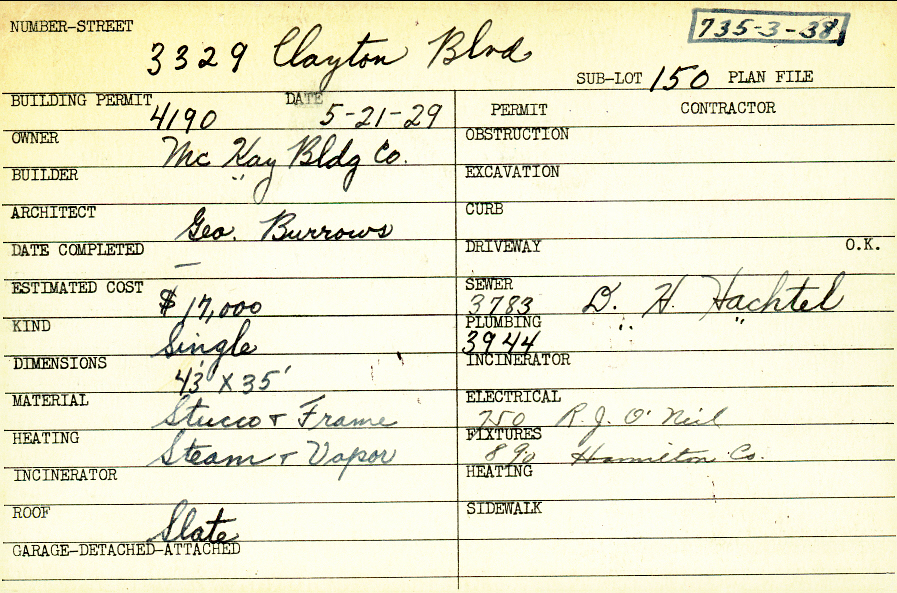 NUMBER-STREET 3329 Clayton Blvd 735-3-38
SUB-LOT 150 PLAN FILE
BUILDING PERMIT 4190 DATE 5-21-29
OWNER Mc Kay Bldg Co.
BUILDER "
ARCHITECT Geo. Burrows
DATE COMPLETED —
ESTIMATED COST $17,000
KIND Single
DIMENSIONS 43' X 35'
MATERIAL Stucco + Frame
HEATING Steam + Vapor
INCINERATOR
ROOF Slate
GARAGE-DETACHED-ATTACHED
PERMIT CONTRACTOR
OBSTRUCTION
EXCAVATION
CURB
DRIVEWAY O.K.
SEWER 3783 D. H. Hachtel
PLUMBING 3944 " "
INCINERATOR
ELECTRICAL 750 R. J. O'Neil
FIXTURES 890 Hamilton Co.
HEATING
SIDEWALK